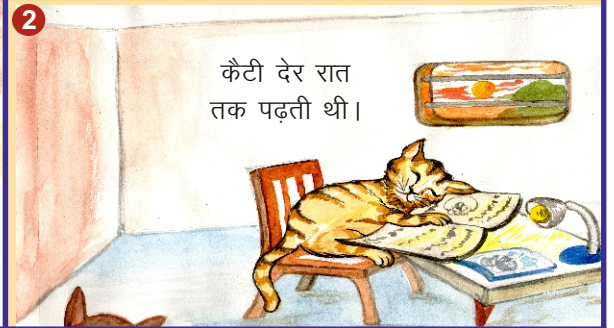 2
कैटी देर रात
तक पढ़ती थी।